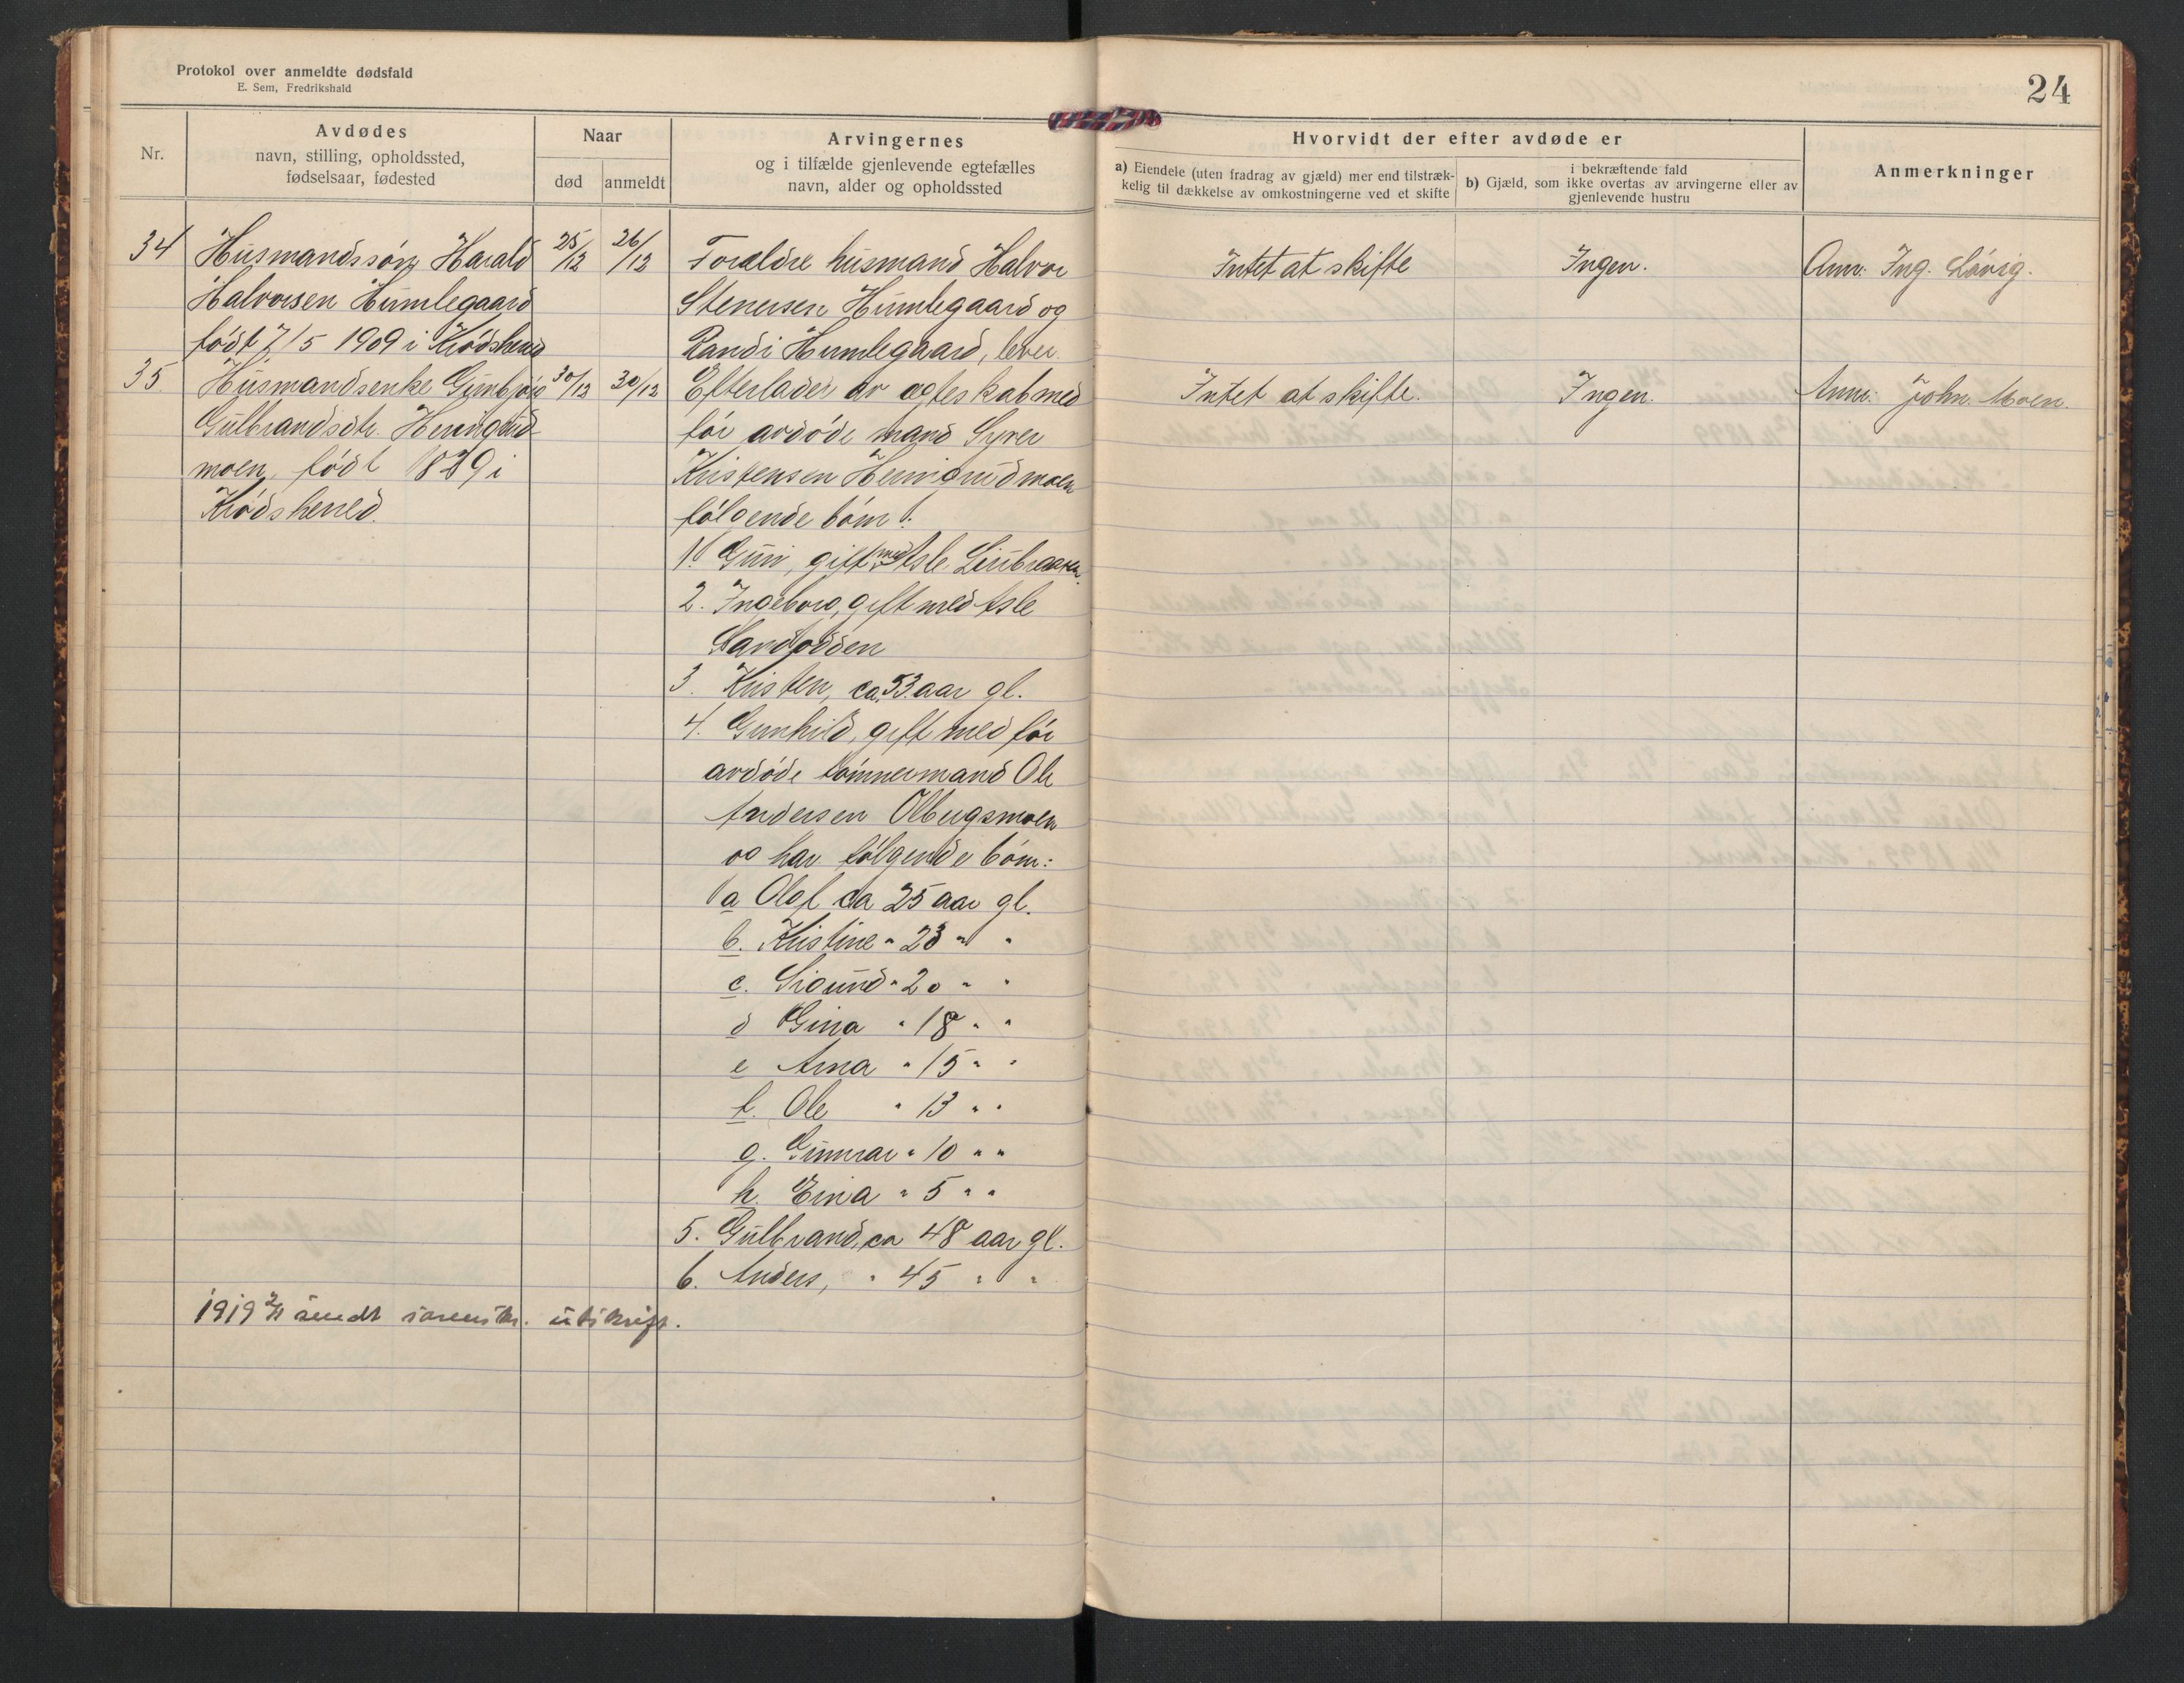 Protokol over anmeldte dødsfald
E. Sem, Fredrikshald
24
Nr.
Avdødes
navn, stilling, opholdssted,
fødselsaar, fødested
Naar
død
anmeldt
Arvingernes
og i tilfælde gjenlevende egtefælles
navn, alder og opholdssted
Hvorvidt der efter avdøde er
a) Eiendele (uten fradrag av gjæld) mer end tilstræk-
kelig til dækkelse av omkostningerne ved et skifte
i bekræftende fald
b) Gjæld, som ikke overtas av arvingerne eller av
gjenlevende hustru
Anmerkninger
34
Husmandssøn Harald
Halvorsen Humlegaard
født 7/5 1909 i Krødsherred
25/12
26/12
Forældre husmand Halvor
Stenersen Humlegaard og
Randi Humlegaard, lever.
Intet at skifte
Ingen.
Anm. Ing. Løvig.
35
Husmandsenke Gunbjør
Gulbrandsdtr. Henrigud
moen, født 1829 i
Krødsherred.
30/12
30/12
Efterlader av ægteskab med
før avdøde mand Syver
Kristensen Henrigrudmoen
følgende børn:
1. Guri, gift med Asle Linbraaten.
2. Ingeborg, gift med Asle
Sandodden
3. Kristen, ca. 53 aar gl.
4. Gunhild, gift med før
avdøde tømmermand Ole
Andersen Olbergsmoen
og har følgende børn:
a Olaf ca 25 aar gl.
b. Kristine " 23 " "
c. Sigurd " 20 " "
d Gina " 18 " "
e Anna " 15 " "
f. Ole " 13 " "
g. Gunnar " 10 " "
h. Eina " 5 " "
5. Gulbrand, ca 48 aar gl.
6. Anders, " 45 " "
Intet at skifte.
Ingen.
Anm: John Moen.
1919 2/1 sendt sorenskr. utskrift.